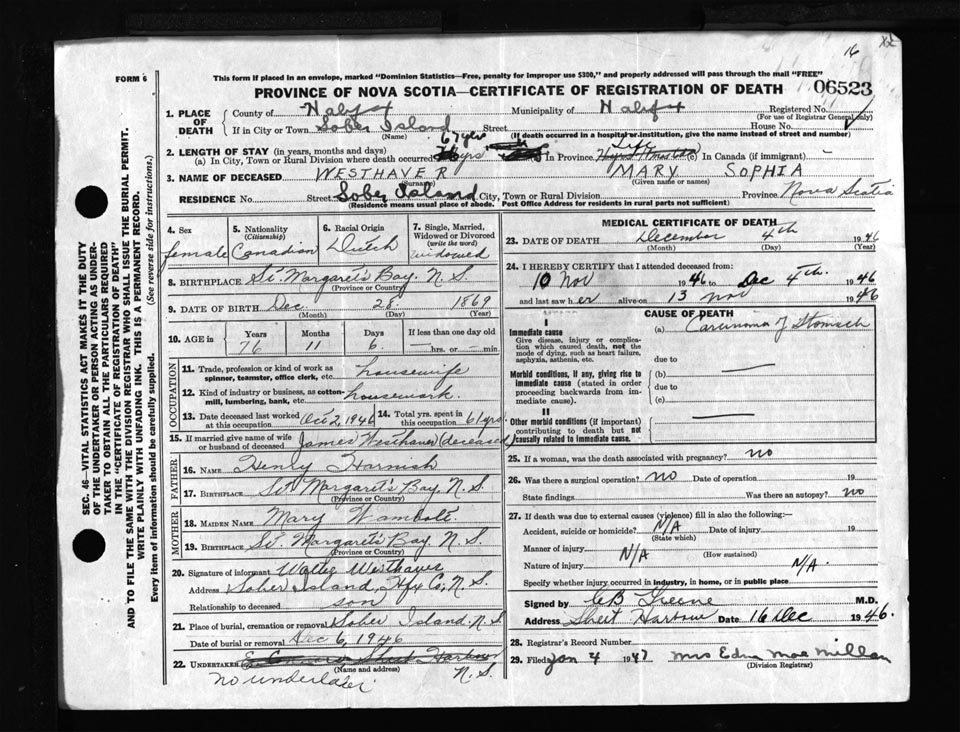 16
XX
FORM 6
This form if placed in an envelope, marked "Dominion Statistics—Free, penalty for improper use $300," and properly addressed will pass through the mail "FREE"
PROVINCE OF NOVA SCOTIA—CERTIFICATE OF REGISTRATION OF DEATH 06523
SEC. 46—VITAL STATISTICS ACT MAKES IT THE DUTY
OF THE UNDERTAKER OR PERSON ACTING AS UNDER-
TAKER TO OBTAIN ALL THE PARTICULARS REQUIRED
IN THE "CERTIFICATE OF REGISTRATION OF DEATH"
AND TO FILE THE SAME WITH THE DIVISION REGISTRAR WHO SHALL ISSUE THE BURIAL PERMIT.
WRITE PLAINLY WITH UNFADING INK. THIS IS A PERMANENT RECORD.
Every item of information should be carefully supplied. (See reverse side for instructions.)
1. PLACE OF DEATH
County of Halifax Municipality of Halifax Registered No.
(For use of Registrar General only)
If in City or Town Sober Island Street House No.
(Name) (If death occurred in a hospital or institution, give the name instead of street and number)
2. LENGTH OF STAY (in years, months and days)
67 yrs Life
(a) In City, Town or Rural Division where death occurred (b) In Province (c) In Canada (if immigrant) –
3. NAME OF DECEASED WESTHAVER MARY SOPHIA
(Surname) (Given name or names)
RESIDENCE No. Street Sober Island City, Town or Rural Division Province Nova Scotia
(Residence means usual place of abode. Post Office Address for residents in rural parts not sufficient)
4. Sex female
5. Nationality (Citizenship) Canadian
6. Racial Origin Dutch
7. Single, Married, Widowed or Divorced (write the word) widowed
8. BIRTHPLACE St. Margaret's Bay, N.S.
(Province or Country)
9. DATE OF BIRTH Dec. 28 1869
(Month) (Day) (Year)
10. AGE in Years Months Days If less than one day old
76 11 6 — hrs. or — min.
OCCUPATION
11. Trade, profession or kind of work as spinner, teamster, office clerk, etc. housewife
12. Kind of industry or business, as cotton-mill, lumbering, bank, etc. housework.
13. Date deceased last worked at this occupation Oct 2, 1946 14. Total yrs. spent in this occupation 61 yrs
15. If married give name of wife or husband of deceased James Westhaver (deceased)
FATHER
16. NAME Henry Harnish
17. BIRTHPLACE St Margaret's Bay, N.S.
(Province or Country)
MOTHER
18. MAIDEN NAME Mary Wambolt.
19. BIRTHPLACE St. Margaret's Bay, N.S.
(Province or Country)
20. Signature of informant Walter Westhaver
Address Sober Island, Hfx Co; N.S.
Relationship to deceased son
21. Place of burial, cremation or removal Sober Island, N.S.
Date of burial or removal Dec 6, 1946
22. UNDERTAKER Sheet Harbour
(Name and address) N.S.
no undertaker
MEDICAL CERTIFICATE OF DEATH
23. DATE OF DEATH December 4th 1946
(Month) (Day)
24. I HEREBY CERTIFY that I attended deceased from:
10 Nov 1946 to Dec 4th. 1946
and last saw her alive on 13 nov 1946
CAUSE OF DEATH
I
Immediate cause (a) Carcinoma of Stomach
Give disease, injury or complication which caused death, not the mode of dying, such as heart failure, asphyxia, asthenia, etc.
due to
Morbid conditions, if any, giving rise to immediate cause (stated in order proceeding backwards from immediate cause). (b)
due to
(c)
II
Other morbid conditions (if important) contributing to death but not causally related to immediate cause.
25. If a woman, was the death associated with pregnancy? no
26. Was there a surgical operation? no Date of operation 19
State findings Was there an autopsy? no
27. If death was due to external causes (violence) fill in also the following:—
Accident, suicide or homicide? N/A Date of injury 19
(State which)
Manner of injury N/A
(How sustained)
Nature of injury N/A.
Specify whether injury occurred in industry, in home, or in public place
Signed by CB Greene M.D.
Address Sheet Harbour Date 16 Dec 1946.
28. Registrar's Record Number
29. Filed Jan 4 1947 Mrs Edna MacMillan
(Division Registrar)